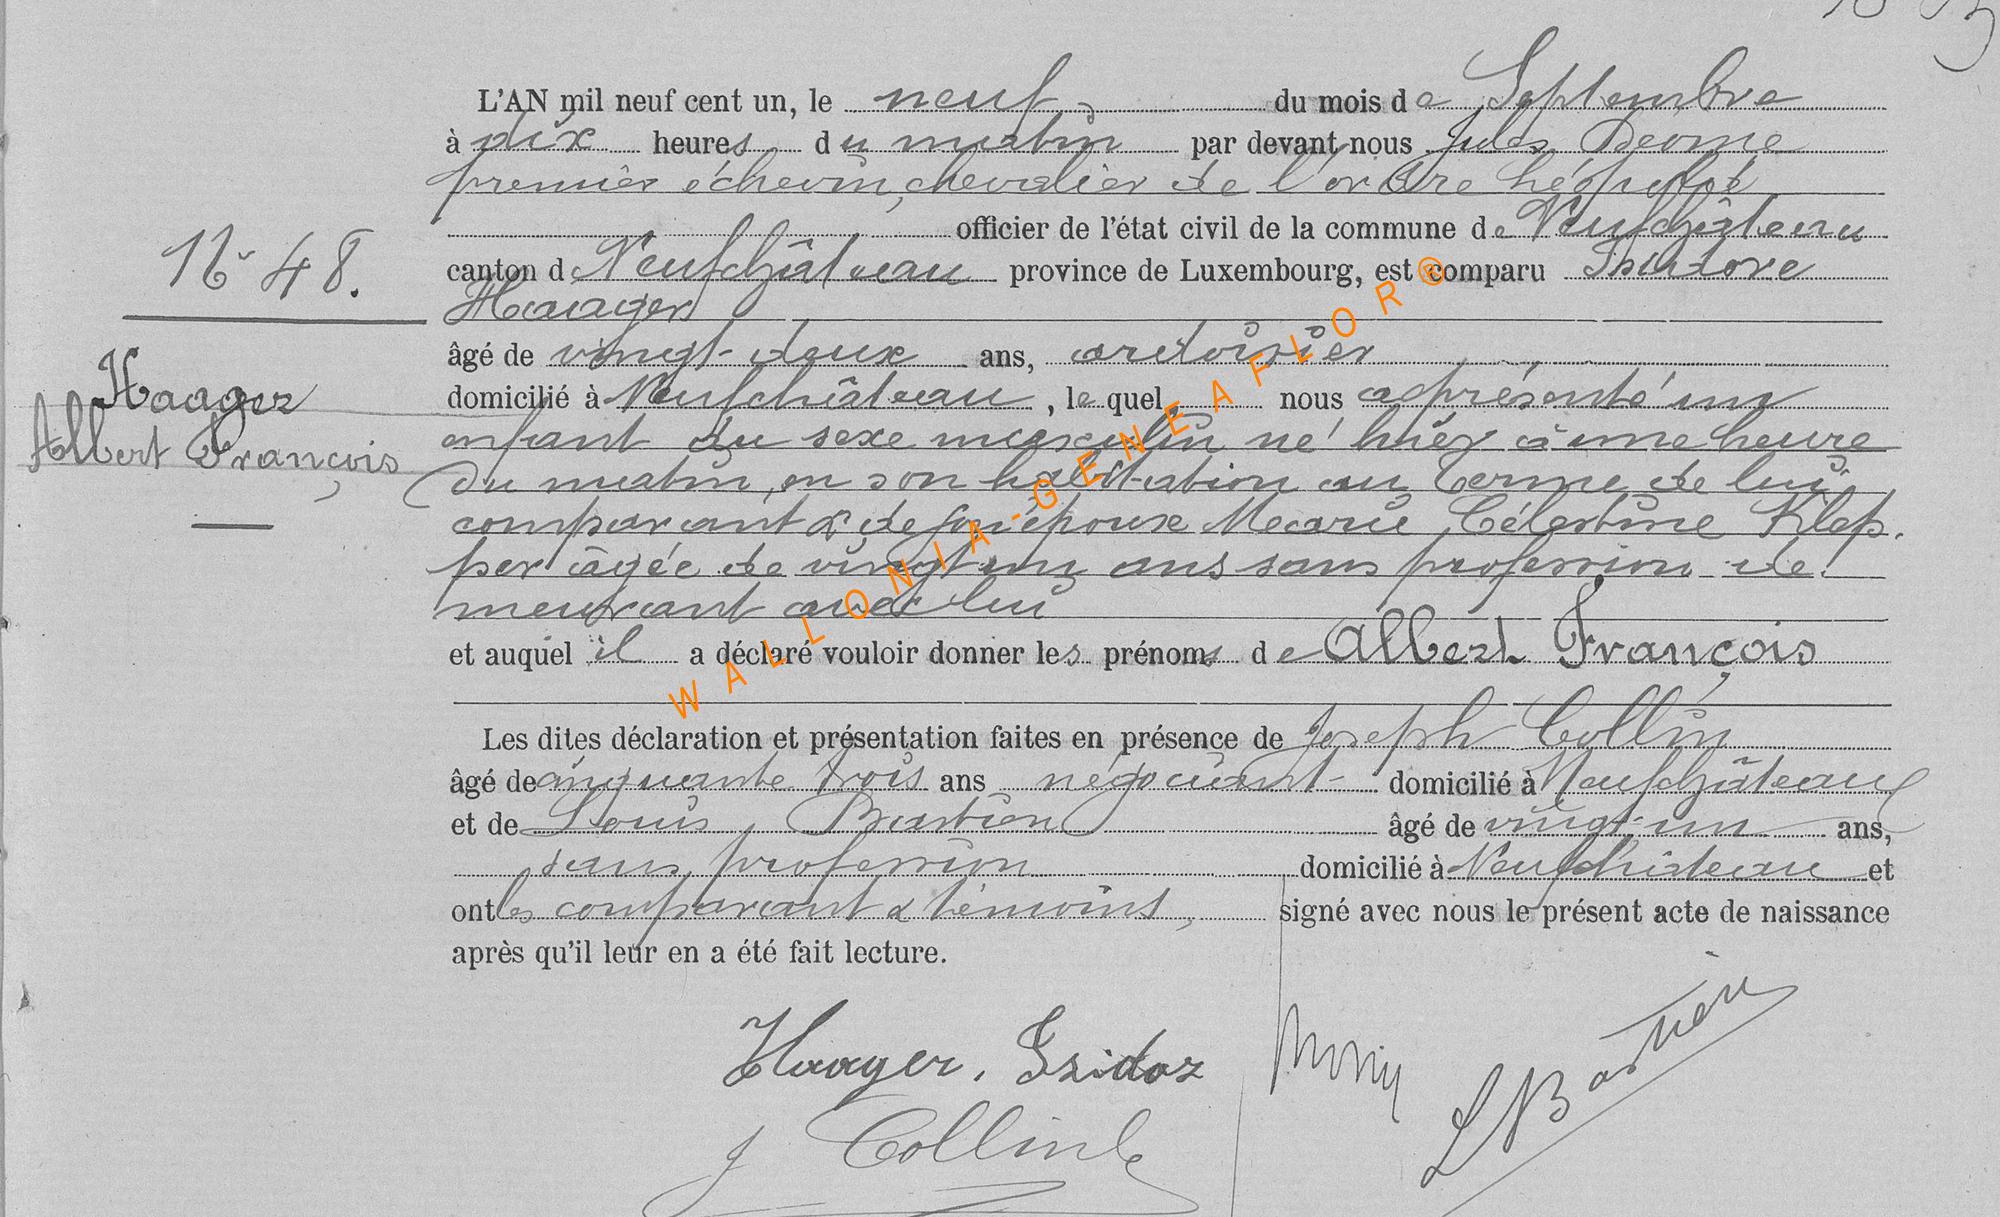 L'AN mil neuf cent un, le neuf, du mois de Septembre
à dix heures du matin par devant nous Jules
premier échevin, chevalier de l'ordre Léopold
officier de l'état civil de la commune de Neufchâteau
N° 48.
canton de Neufchâteau province de Luxembourg, est comparu Isidore
Haager
âgé de vingt-deux ans, ardoisier
Haager
Albert François
domicilié à Neufchâteau, le quel, nous a présenté un
enfant du sexe masculin né hier à une heure
du matin, en son habitation au Terme de lui
comparant & de son épouse Marie Célestine Klep.
per âgée de vingt-un ans sans profession de
meurant avec lui
et auquel il a déclaré vouloir donner les prénoms de Albert François
Les dites déclaration et présentation faites en présence de Joseph Collin
âgé de cinquante trois ans négociant domicilié à Neufchâteau
et de Louis Bastien âgé de vingt-un ans,
sans profession domicilié à Neufchâteau et
ont les comparant & témoins, signé avec nous le présent acte de naissance
après qu'il leur en a été fait lecture.
Haager. Isidor
L Bastien
J Collin
WALLONIA-GENEAFLOR®